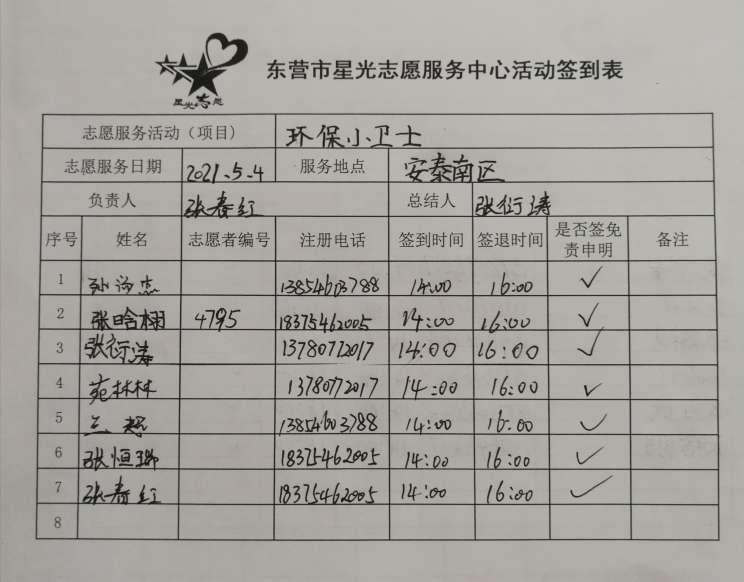 星光志愿
东营市星光志愿服务中心活动签到表
志愿服务活动（项目） 环保小卫士
志愿服务日期 2021.5.4 服务地点 安泰南区
负责人 张春红 总结人 张衍涛
序号 姓名 志愿者编号 注册电话 签到时间 签退时间 是否签免责申明 备注
1 孙 杰 13854603788 14:00 16:00 ✓
2 张晗栩 4795 18375462005 14:00 16:00 ✓
3 张衍涛 13780772017 14:00 16:00 ✓
4 苑林林 13780772017 14:00 16:00 ✓
5 13854603788 14:00 16:00 ✓
6 张恒瑞 18375462005 14:00 16:00 ✓
7 张春红 18375462005 14:00 16:00 ✓
8